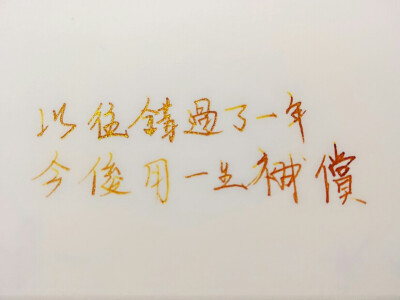 以往錯過了一年
今後用一生補償